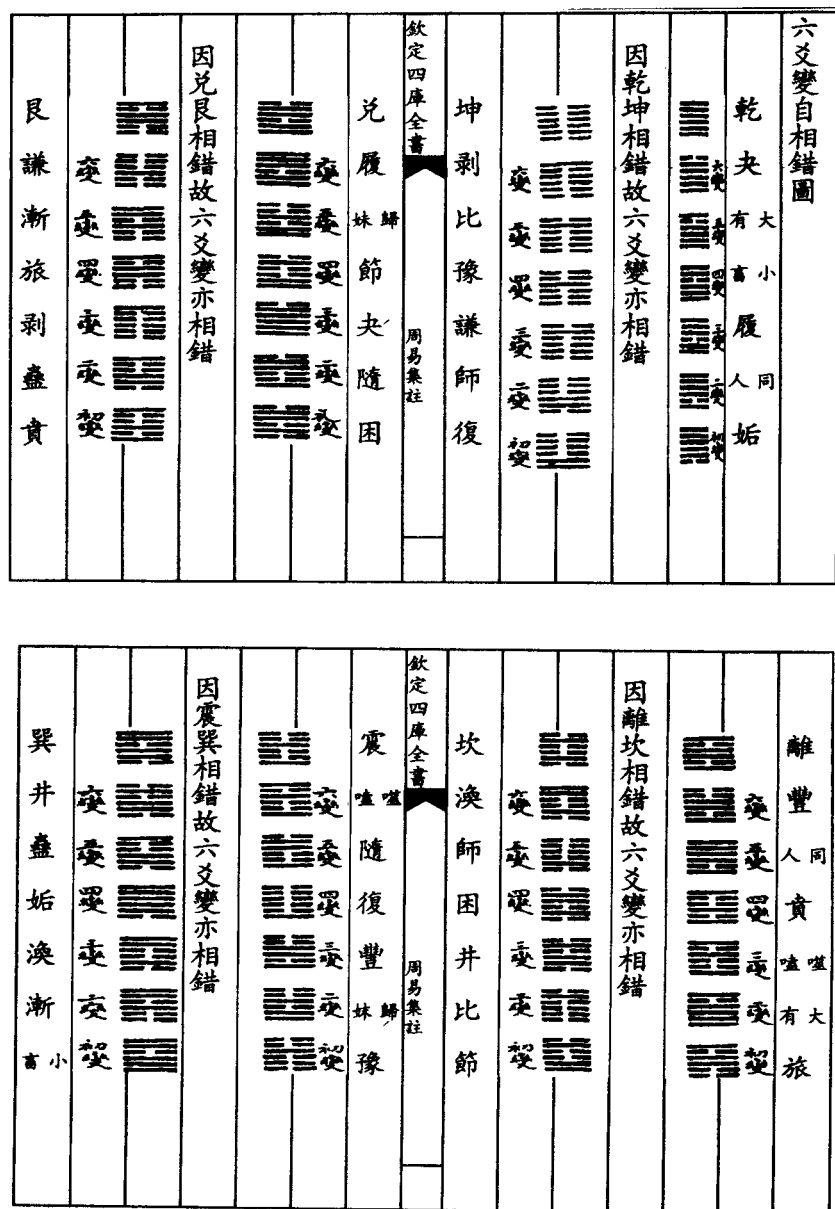 六爻變自相錯圖
乾 夬 大有 小畜 履 同人 姤
六變 五變 四變 三變 二變 初變
因乾坤相錯故六爻變亦相錯
六變 五變 四變 三變 二變 初變
坤 剥 比 豫 謙 師 復
欽定四庫全書 周易集註
兌 履 歸妹 節 夬 隨 困
六變 五變 四變 三變 二變 初變
因兌艮相錯故六爻變亦相錯
六變 五變 四變 三變 二變 初變
艮 謙 漸 旅 剥 蠱 賁
離 豐 同人 賁 噬嗑 大有 旅
六變 五變 四變 三變 二變 初變
因離坎相錯故六爻變亦相錯
六變 五變 四變 三變 二變 初變
坎 渙 師 困 井 比 節
欽定四庫全書 周易集註
震 噬嗑 隨 復 豐 歸妹 豫
六變 五變 四變 三變 二變 初變
因震巽相錯故六爻變亦相錯
六變 五變 四變 三變 二變 初變
巽 井 蠱 姤 渙 漸 小畜